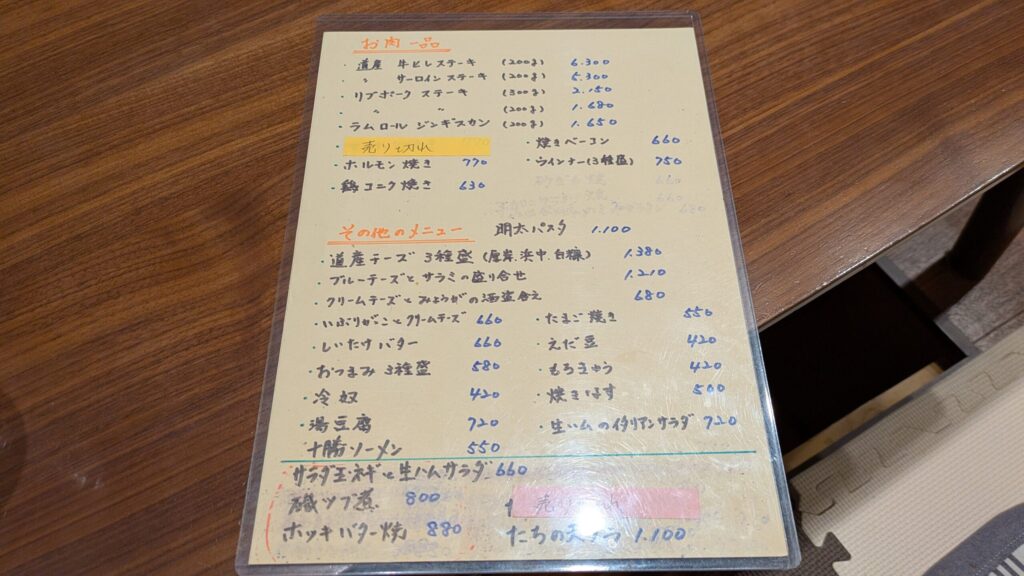 お肉一品
・道産 牛ヒレステーキ (200g) 6.300
・〃 サーロインステーキ (200g) 5.300
・リブポーク ステーキ (300g) 2.150
・〃 〃 (200g) 1.680
・ラムロール ジンギスカン (200g) 1.650
・売り切れ ・焼きベーコン 660
・ホルモン焼き 770 ・ウインナー(3種盛) 750
・鶏コニク焼き 630
その他のメニュー 明太パスタ 1.100
・道産チーズ 3種盛 (厚岸.浜中.白糠) 1.380
・ブルーチーズとサラミの盛り合せ 1.210
・クリームチーズとみょうがの酒盗合え 680
・いぶりがっことクリームチーズ 660 ・たまご焼き 550
・しいたけバター 660 ・えだ豆 420
・おつまみ 3種盛 580 ・もろきゅう 420
・冷奴 420 ・焼きなす 500
・湯豆腐 720 ・生ハムのイタリアンサラダ 720
十勝ソーメン 550
サラダ玉ネギと生ハムサラダ 660
磯ツブ煮 800 売り
ホッキバター焼 880 たちの天ぷら 1.100